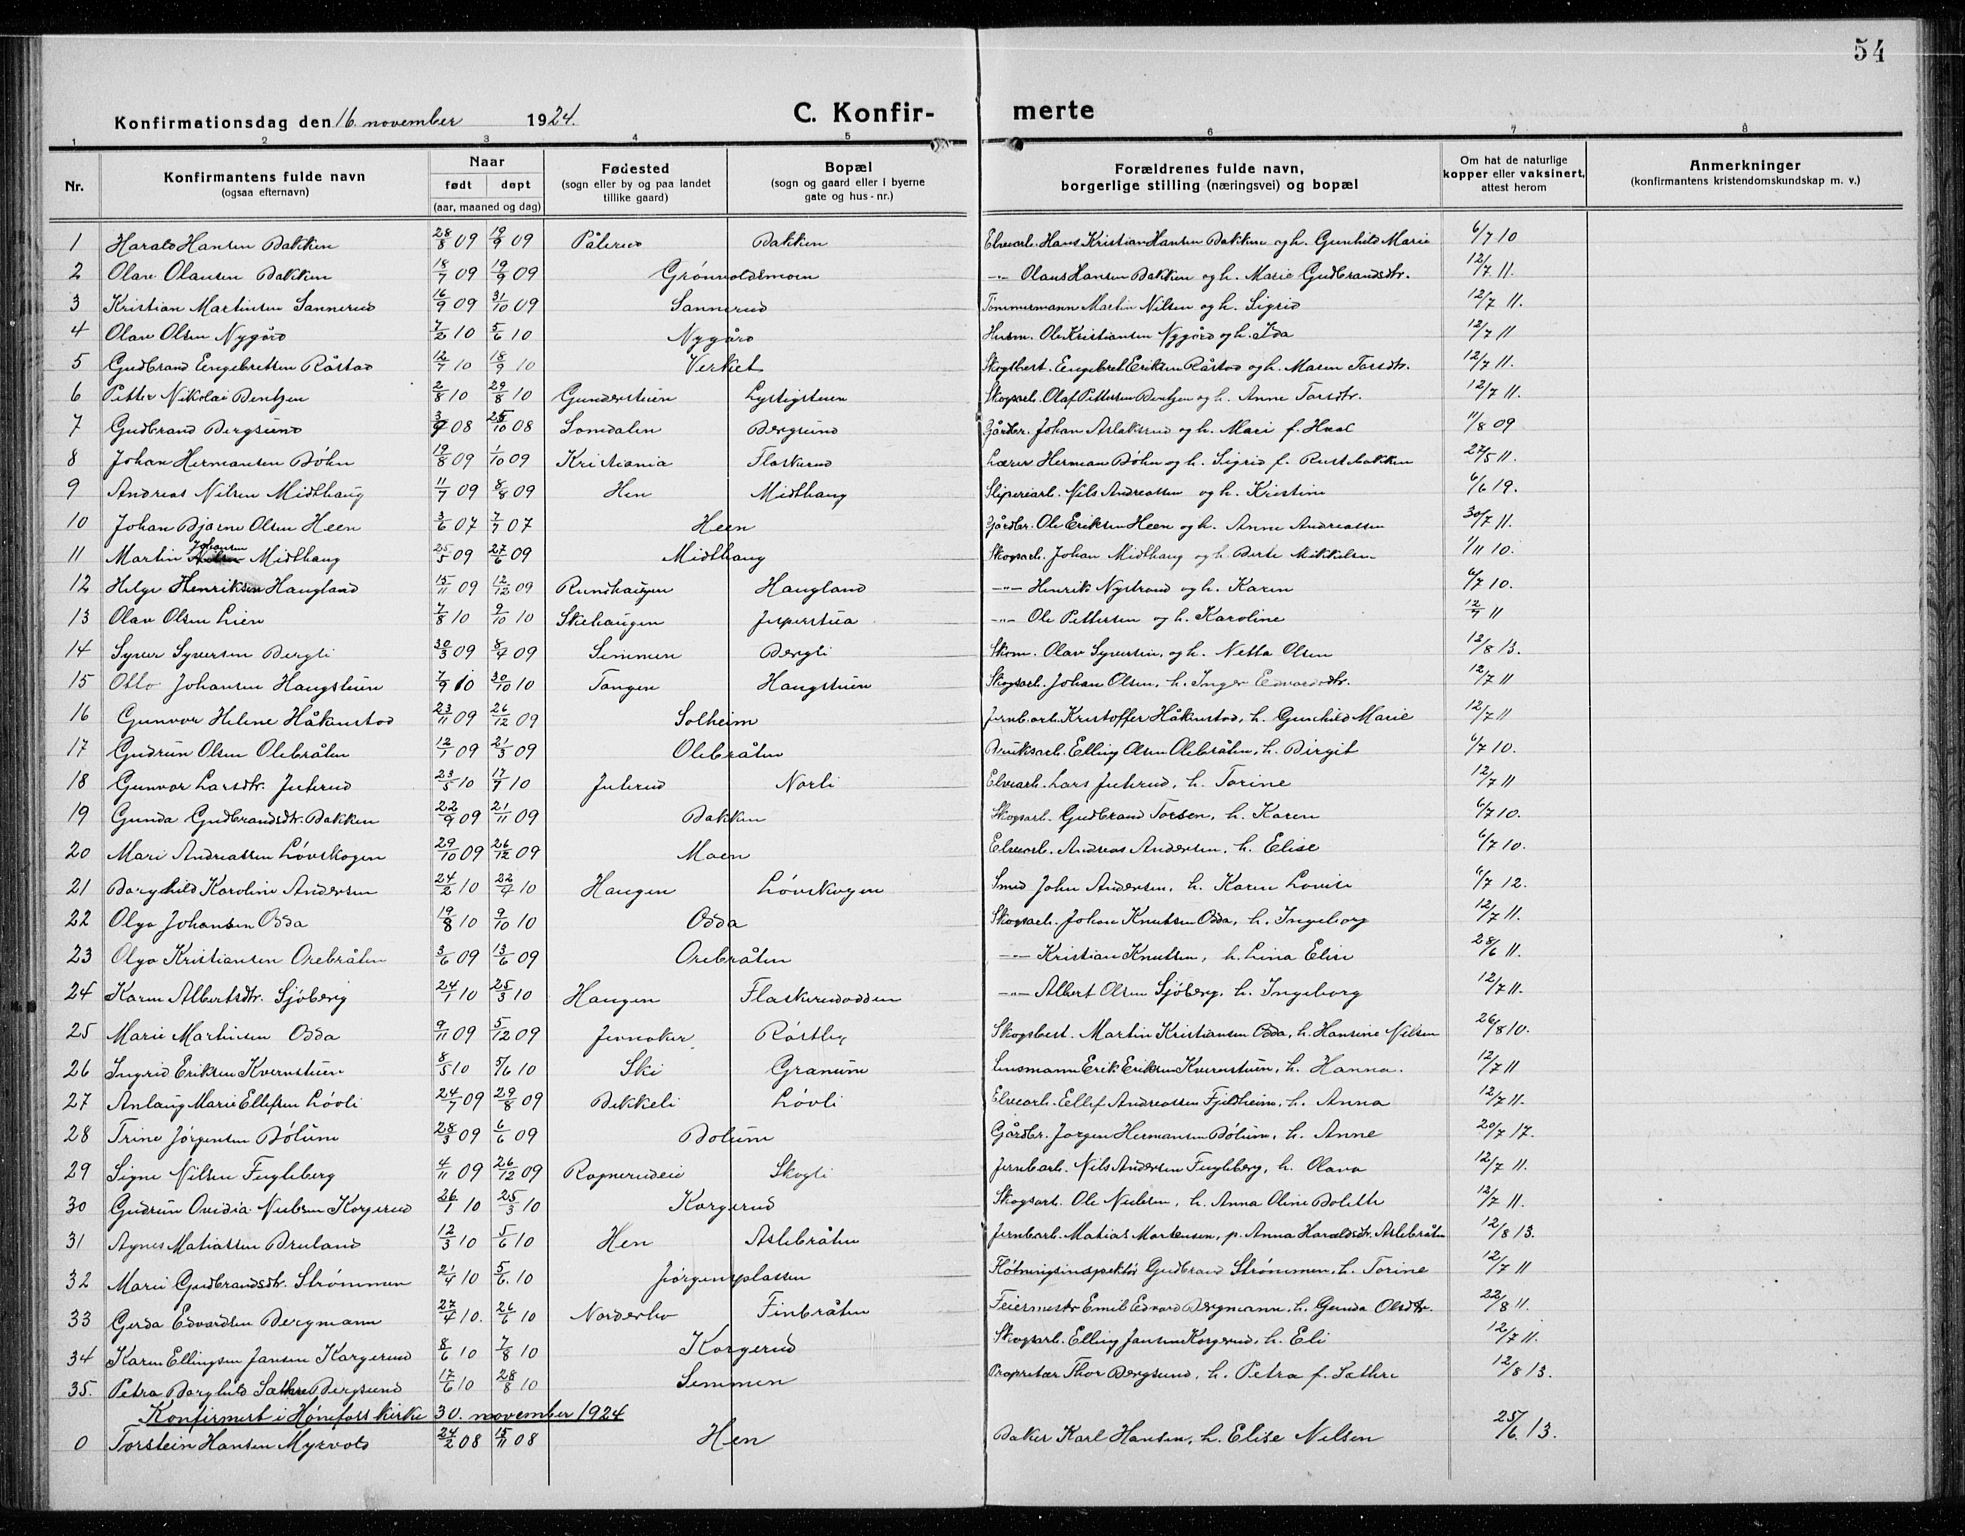 54
Konfirmationsdag den 16. november 1924. C. Konfir- merte
1 2 3 4 5 6 7 8
Nr. Konfirmantens fulde navn (ogsaa efternavn) Naar født døpt (aar, maaned og dag) Fødested (sogn eller by og paa landet tillike gaard) Bopæl (sogn og gaard eller i byerne gate og hus-nr.) Forældrenes fulde navn, borgerlige stilling (næringsvei) og bopæl Om hat de naturlige kopper eller vaksinert, attest herom Anmerkninger (konfirmantens kristendomskundskap m. v.)
1 Harald Hansen Bakken 28/8 09 19/9 09 Pålerud Bakken Elvearb. Hans Kristian Hansen Bakken og h. Gunhild Marie 6/7 10
2 Olav Olausen Bakken 18/7 09 19/9 09 Grønvoldsmoen -"- Olaus Hansen Bakken og h. Marie Gudbrandsdtr. 12/7 11.
3 Kristian Martinsen Sannerud 16/9 09 31/10 09 Sannerud Tømmermann Martin Nilsen og h. Sigrid 12/7 11.
4 Olav Olsen Nygård 7/2 10 5/6 10 Nygård Husm. Ole Kristiansen Nygård og h. Ida 12/7 11
5 Gudbrand Engebretsen Råstad 12/7 10 18/9 10 Verket Skogbest. Engebret Eriksen Råstad og h. Maren Torsdtr. 12/7 11.
6 Petter Nikolai Bentzen 2/8 10 29/8 10 Gunderstuen Lystigstuen Skogsarb. Olaf Pettersen Bentzen og h. Anne Torsdtr. 12/7 11.
7 Gudbrand Bergsund 3/9 08 25/10 08 Somdalen Bergsund Gårdbr. Johan Aslaksrud og h. Mari f. Haal 11/8 09
8 Johan Hermansen Bøhn 19/8 09 1/10 09 Kristiania Flaskerud Lærer Herman Bøhn og h. Sigrid f. Rustebakken 27/5 11.
9 Andreas Nilsen Midthaug 11/7 09 8/8 09 Hen Midthaug Sliperiarb. Nils Andreassen og h. Kristine 6/6 19.
10 Johan Bjarne Olsen Heen 3/6 07 7/7 07 Heen Gårdbr. Ole Eriksen Heen og h. Anne Andreassen 30/7 11.
11 Martin Johansen Midthaug 25/5 09 27/6 09 Midthaug Skogsarb. Johan Midthaug og h. Berte Mikkelsen 1/11 10.
12 Helge Henriksen Haugland 15/11 09 12/12 09 Rundhaugen Haugland -"- Henrik Nystrand og h. Karen 6/7 10.
13 Olav Olsen Lien 7/8 10 9/10 10 Skihaugen Jesperstua -"- Ole Pettersen og h. Karoline 12/7 11
14 Syver Syversen Bergli 30/3 09 8/4 09 Semmen Bergli Skom. Olav Syversen, og h. Netta Olsen 12/8 13.
15 Otto Johansen Haugstuen 7/9 10 30/10 10 Tangen Haugstuen Skogsarb. Johan Olsen, h. Inger Edvardsdtr. 12/7 11
16 Gunvor Helene Håkenstad 23/11 09 26/12 09 Solheim Jernb.arb. Kristoffer Håkenstad, h. Gunhild Marie 12/7 11
17 Gudrun Olsen Olebråten 12/1 09 21/3 09 Olebråten Bruksarb. Elling Olsen Olebråten, h. Birgit 6/7 10.
18 Gunvor Larsdtr. Juterud 23/5 10 17/7 10 Juterud Norli Elvearb. Lars Juterud, h. Torine 12/7 11
19 Gunda Gudbrandsdtr. Bakken 22/9 09 21/11 09 Bakken Skogsarb. Gudbrand Torsen, h. Karen 6/7 10.
20 Mari Andreassen Løvskogen 29/10 09 26/12 09 Moen Elvearb. Andreas Andersen, h. Elise 6/7 10.
21 Borghild Karoline Andersen 24/2 10 22/4 10 Haugen Løvskogen Smed John Andersen, h. Karen Lovise 6/7 12.
22 Olga Johansen Odda 19/8 10 9/10 10 Odda Skogsarb. Johan Knutsen Odda, h. Ingeborg 12/7 11.
23 Olga Kristiansen Orebråten 3/6 09 13/6 09 Orebråten -"- Kristian Knutsen, h. Lina Elise 28/6 11.
24 Karen Albertsdtr. Sjöberg 24/1 10 25/3 10 Haugen Flaskerudodden -"- Albert Olsen Sjöberg, h. Ingeborg 12/7 11.
25 Marie Martinsen Odda 9/11 09 5/12 09 Jevnaker Røstby Skogsbest. Martin Kristiansen Odda, h. Hansine Nilsen 26/8 10.
26 Ingrid Eriksen Kvernstuen 8/5 10 5/6 10 Ski Granum Lensmann Erik Eriksen Kvernstuen, h. Hanna. 12/7 11
27 Anlaug Marie Ellefsen Løvli 24/7 09 29/8 09 Bekkeli Løvli Elvearb. Ellef Andreassen Fjeldheim, h. Anna 12/7 11.
28 Trine Jörgensen Bölum 28/3 09 6/6 09 Bolum Gårdbr. Jorgen Hermansen Bölum, h. Anne 20/7 17.
29 Signe Nilsen Fugleberg 4/11 09 26/12 09 Rognerudeie Skogli Jernbarb. Nils Andersen Fugleberg, h. Olava 12/7 11.
30 Gudrun Ovidia Nielsen Korgerud 26/1 10 25/3 10 Korgerud Skogsarb. Ole Nielsen, h. Anna Oline Bolette 12/7 11.
31 Agnes Matiassen Bruland 12/3 10 5/6 10 Hen Aslebråten Jernbarb. Matias Mortensen, p. Anna Haraldsdtr. Aslebråten 12/8 13.
32 Marie Gudbrandsdtr. Strømmen 21/4 10 5/6. 10 Jørgensplassen Fløtningsinspektør Gudbrand Strømmen, h. Torine 12/7 11
33 Gerda Edvardsen Bergmann 27/4 10. 26/6 10 Norderhov Finbråten Feiermestr Emil Edvard Bergmann, h. Gunda Olsdtr. 22/8 11.
34 Karen Ellingsen Jansen Korgerud 8/6 10 7/8 10 Korgerud Skogsarb. Elling Jansen Korgerud, h. Eli 12/7 11.
35. Petra Borghild Sæthre Bergsund 17/6 10 28/8 10 Semmen Proprietær Thor Bergsund, h. Petra f. Sæthre 12/8 13.
Konfirmert i Hønefoss kirke 30. november 1924
0 Torstein Hansen Myrvold 24/2 08 15/11 08 Hen Baker Karl Hansen, h. Elise Nilsen 25/6. 13.